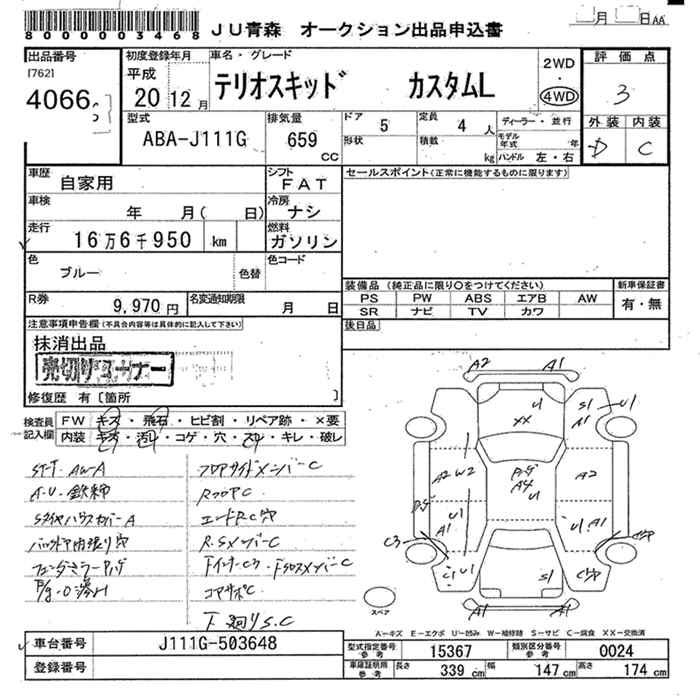 80000003468
JU青森 オークション出品申込書
月 日 AA
出品番号
[762]
4066
初度登録年月
平成
20 12月
車名・グレード
テリオスキッド カスタムL
2WD
・
4WD
評価点
3
外装 内装
D C
型式
ABA-J111G
排気量
659
cc
ドア
5
形状
定員
4 人
積載
kg
ディーラー・並行
モデル年式 年
ハンドル 左・右
車歴
自家用
シフト
FAT
車検
年 月( 日)
冷房
ナシ
走行
16万6千950 km
燃料
ガソリン
色
ブルー
色替
色コード
R券
9,970 円
名変通知期限
月 日
セールスポイント(正常に機能するものに限ります)
装備品 (純正品に限り○をつけてください)
PS PW ABS エアB AW
SR ナビ TV カワ
新車保証書
有・無
後日品
注意事項申告欄(不具合内容等は具体的に記入して下さい)
抹消出品
売切りコーナー
修復歴 有〔箇所 〕
検査員
記入欄
FW キズ・飛石・ヒビ割・リペア跡・×要
内装 キズ・汚レ・コゲ・穴・スレ・キレ・破レ
ST-T AW-A
A-U・鉄錆
SタイヤハウスカバーA
バックドア内張り穴
フロアサイドメンバーC
RフロアC
エンドRC穴
R.SメンバーC
FインナーC3・FクロスメンバーC
コアサポC
下廻りS.C
A2 A1
U1 XX
S1 A1 U1
A2 W2
A4 U1
A2
U1 A1
U1 A1
C3
C1 U1
S1
A1 A1
スペア
A-キズ E-エクボ U-凹み W-補修跡 S-サビ C-腐食 XX-交換済
車台番号
J111G-503648
登録番号
型式指定番号
参考
15367
類別区分番号
参考
0024
車庫証明用
参考
長さ 339 cm 幅 147 cm 高さ 174 cm